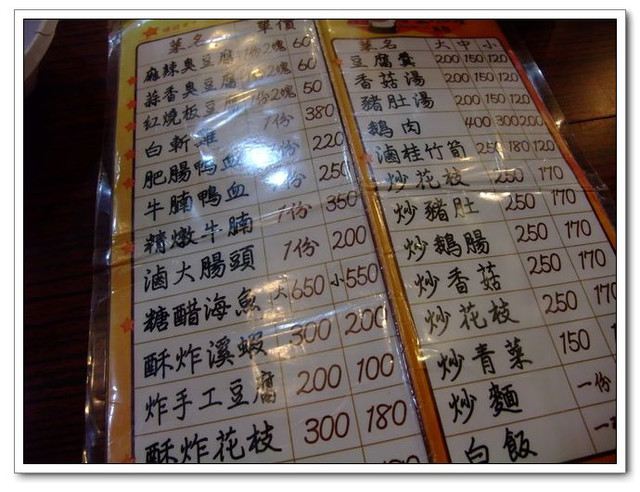 菜名 單價
麻辣臭豆腐 1份2塊 60
蒜香臭豆腐 1份2塊 60
紅燒板豆腐 1份2塊 50
白斬雞 1份 380
肥腸鴨血 1份 220
牛腩鴨血 1份 250
精燉牛腩 1份 350
滷大腸頭 1份 200
糖醋海魚 大650 小550
酥炸溪蝦 300 200
炸手工豆腐 200 100
酥炸花枝 300 180
菜名 大 中 小
豆腐羹 200 150 120
香菇湯 200 150 120
豬肚湯 200 150 120
鵝肉 400 300 200
滷桂竹筍 250 180 120
炒花枝 250 170
炒豬肚 250 170
炒鵝腸 250 170
炒香菇 250 170
炒花枝 250 170
炒青菜 150
炒麵 一份
白飯 一